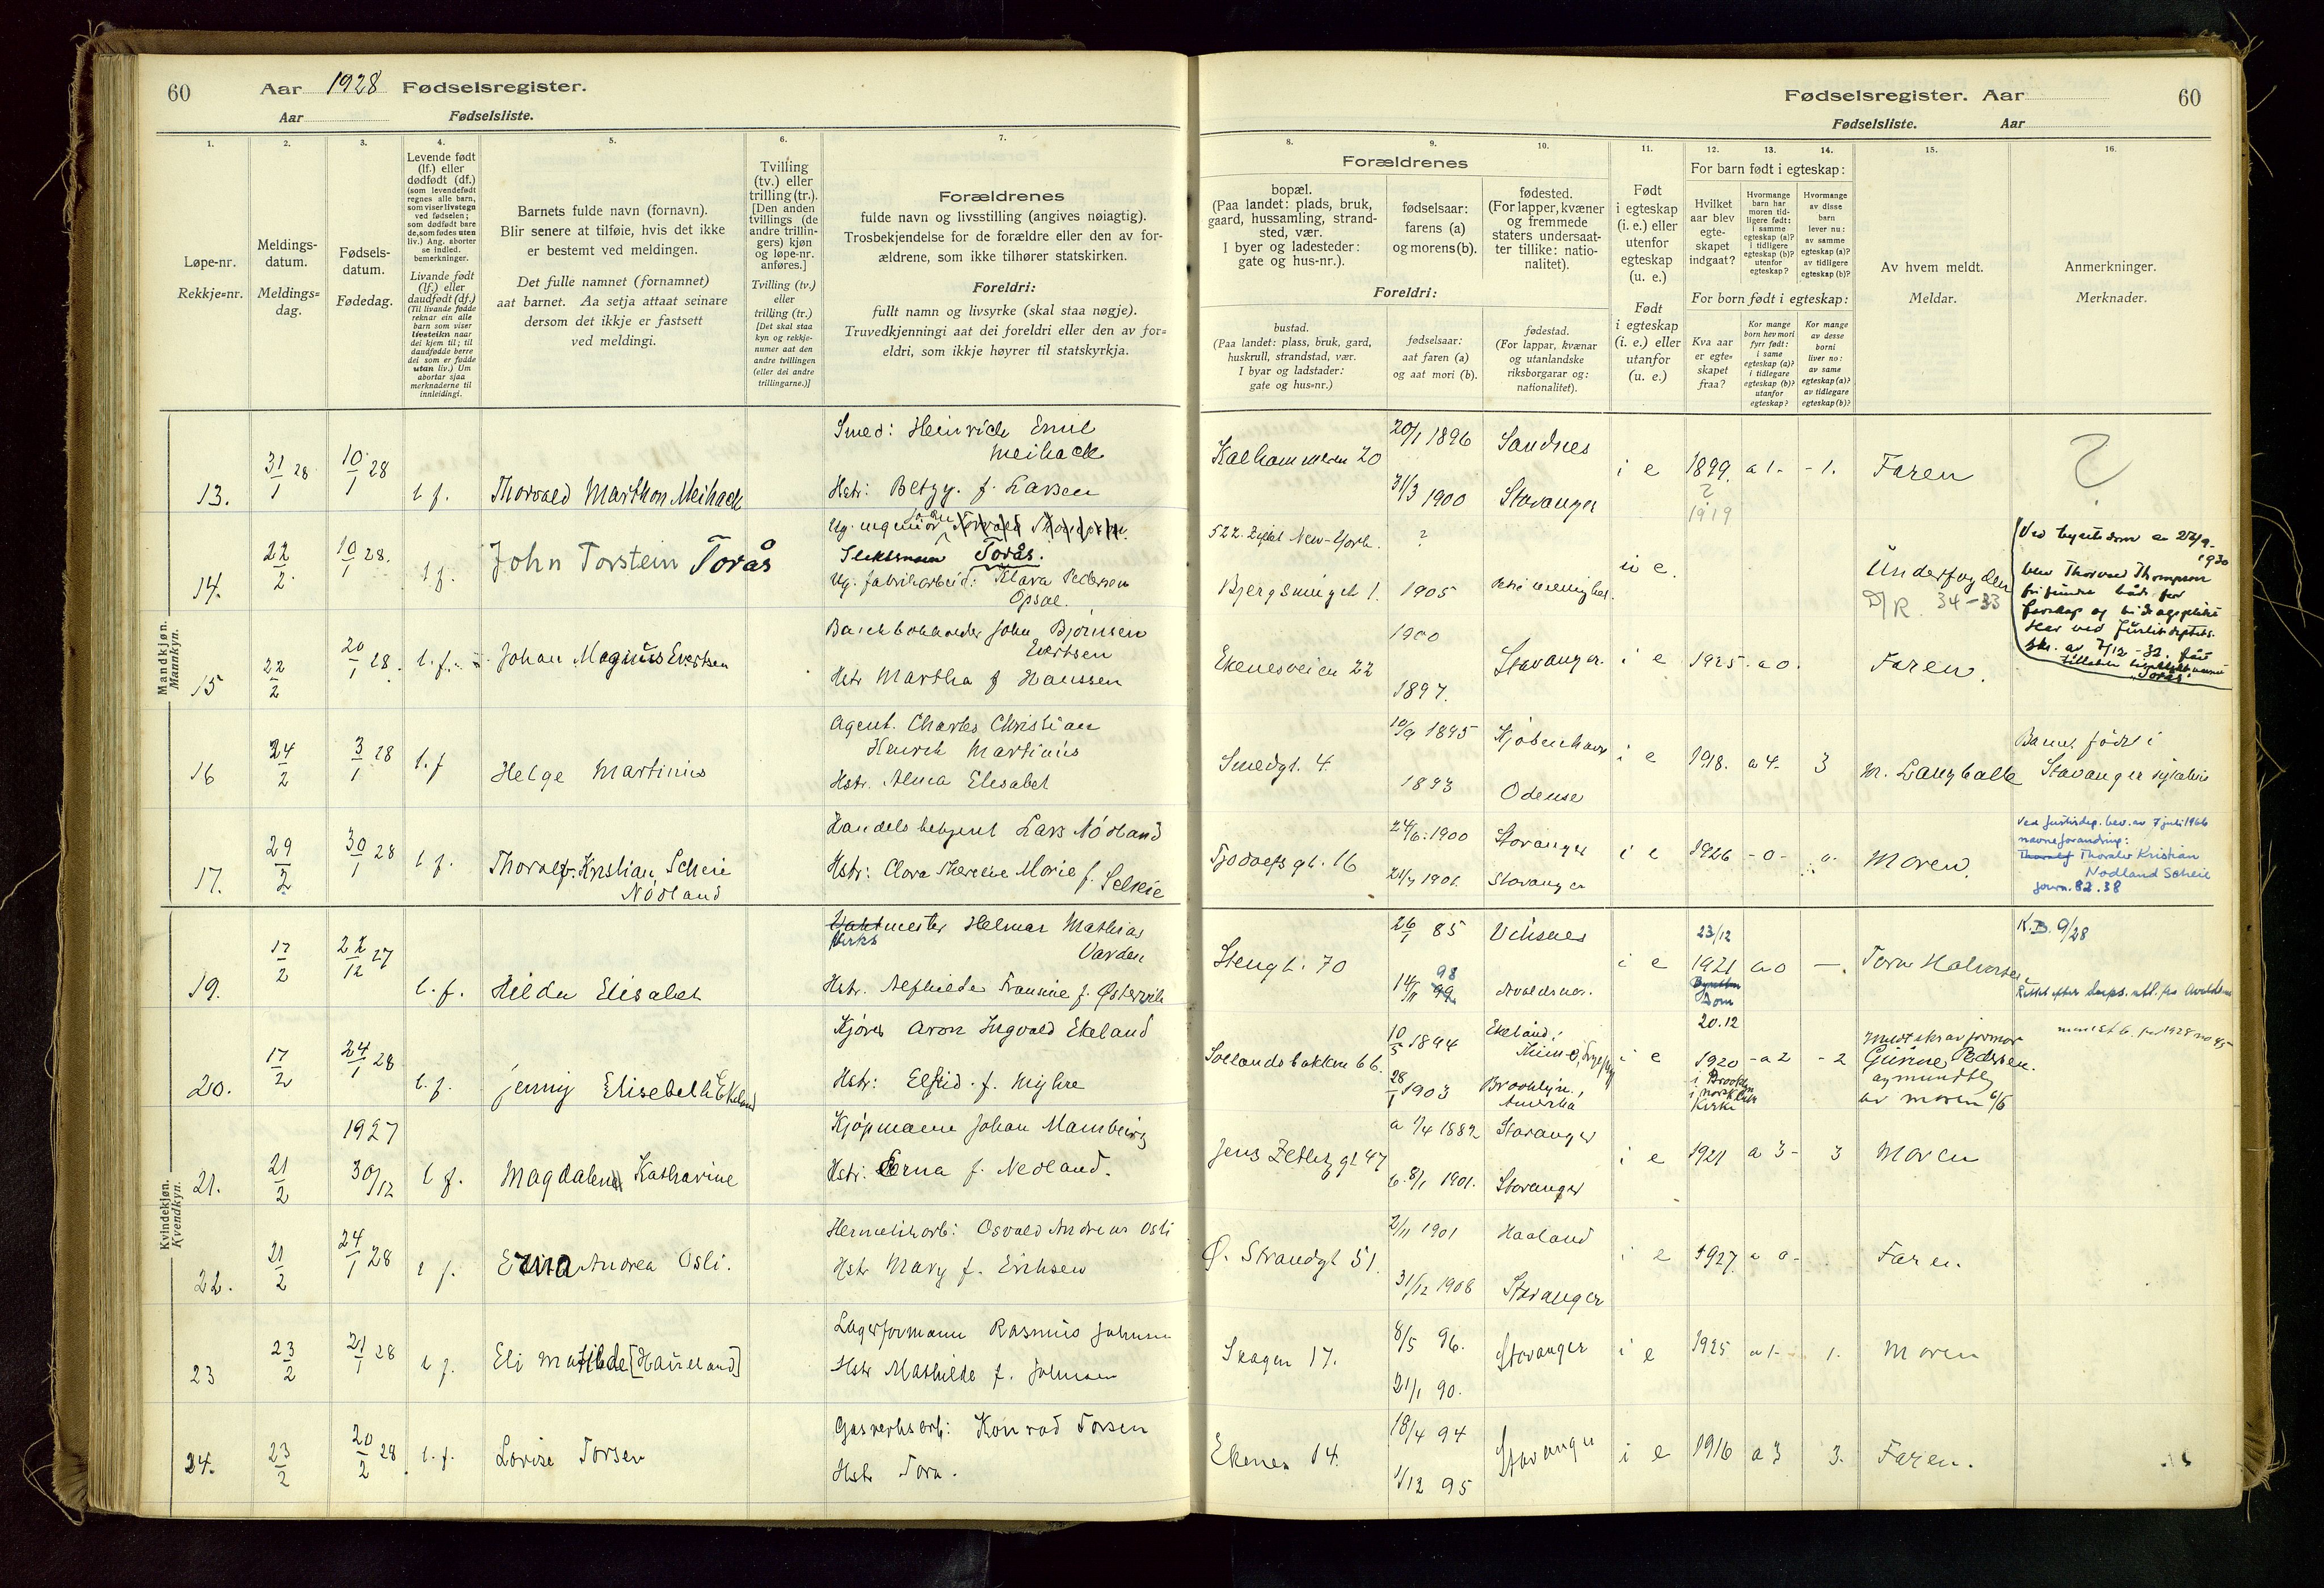 60
Aar 1928 Fødselsregister.
Aar Fødselsliste.
Fødselsregister. Aar
60
Fødselsliste. Aar
1.
2.
3.
4.
5.
6.
7.
8.
9.
10.
11.
12.
13.
14.
15.
16.
Løpe-nr.
Rekkje=nr.
Meldings-
datum.
Meldings=
dag.
Fødsels-
datum.
Fødedag.
Levende født
(lf.) eller
dødfødt (df.)
(som levendefødt
regnes alle barn,
som viser livstegn
ved fødselen;
som dødfødt bare
de, som fødes uten
liv.) Ang. aborter
se indled.
bemerkninger.
Livande født
(lf.) eller
daudfødt (df.)
(Til livande fødde
reknar ein alle
barn som viser
livsteikn naar
dei kjem til; til
daudfødde berre
dei som er fødde
utan liv.) Um
abortar sjaa
merknaderne til
innleidingi.
Barnets fulde navn (fornavn).
Blir senere at tilføie, hvis det ikke
er bestemt ved meldingen.
Det fulle namnet (fornamnet)
aat barnet. Aa setja attaat seinare
dersom det ikkje er fastsett
ved meldingi.
Tvilling
(tv.) eller
trilling (tr.).
[Den anden
tvillings (de
andre trillin-
gers) kjøn
og løpe-nr.
anføres.]
Tvilling (tv.)
eller
trilling (tr.)
[Det skal staa
kyn og rekkje-
numer aat den
andre tvillingen
(eller dei andre
trillingarne.)]
Forældrenes
fulde navn og livsstilling (angives nøiagtig).
Trosbekjendelse for de forældre eller den av for-
ældrene, som ikke tilhører statskirken.
Foreldri:
fullt namn og livsyrke (skal staa nøgje).
Truvedkjenningi aat dei foreldri eller den av for=
eldri, som ikkje høyrer til statskyrkja.
Forældrenes
bopæl.
(Paa landet: plads, bruk,
gaard, hussamling, strand-
sted, vær.
I byer og ladesteder:
gate og hus-nr.).
fødselsaar:
farens (a)
og morens (b).
fødested.
(For lapper, kvæner
og fremmede
staters undersaat-
ter tillike: natio-
nalitet).
Foreldri:
bustad.
(Paa landet: plass, bruk, gard,
huskrull, strandstad, vær.
I byar og ladstader:
gate og hus=nr.)
fødselsaar:
aat faren (a)
og aat mori (b).
fødestad.
(For lappar, kvænar
og utanlandske
riksborgarar og:
nationalitet).
Født
i egteskap
(i. e.) eller
utenfor
egteskap
(u. e.)
Født
i egteskap
(i. e.) eller
utanfor
(u. e.)
For barn født i egteskap:
Hvilket
aar blev
egte-
skapet
indgaat?
Hvormange
barn har
moren tid-
ligere født:
i samme
egteskap (a)?
i tidligere
egteskap (b)?
utenfor
egteskap?
Hvormange
av disse
barn
lever nu:
av samme
egteskap (a)?
av tidligere
egteskap (b)?
For born født i egteskap:
Kva aar
er egte=
skapet
fraa?
Kor mange
born hev mori
fyrr født:
i same
egteskap (a)?
i tidlegare
egteskap (b)?
utanfor
egteskap?
Kor mange
av desse
borni
liver no:
av same
egteskap (a)?
av tidlegare
egteskap (b)?
Av hvem meldt.
Meldar.
Anmerkninger.
Merknader.
Mandkjøn.
Mannkyn.
13. 31/1 28 10/1 28 l f. Thorvald Marthon Meihack
Smed: Heinrich Emil
Meihack
Hstr: Betzy. f. Larsen
Kalhammeren 20 20/1 1896 Sandnes
31/3 1900 Stavanger
i e 1899. a 1. - 1. Faren ?
?
1919
14. 22/2 10/1 28. l f. John Torstein Torås
Torås.
Ug. fabrikarbeid: Klara Pedersen
Opsal.
522. New-York. ?
1. 1905
u e.
Underfogden
D/R. 34-33
Ved
1930
blev Thorvald Thompson
frifundet både for
farskap og bidragsplikt
"Torås"
15 22/2 20/1 28. l. f. Johan Magnus Evertsen
John Bjørnsen
Evertsen
Hstr Martha f Hanssen
Ekenesveien 22 1900 Stavanger.
1897.
i e 1925. a o. Faren.
16 24/2 3/1 28 l. f Helge Martinius
Agent. Charles Christian
Henrik Martinius
Hstr. Alma Elisabet
Smedgt. 4. 10/9 1895 Kjøbenhavn
1893 Odense
i e 1918. a 4. 3 M. Langballe
Barnet født i
Stavanger sykehus
17. 29/2 30/1 28 l f. Thoralf Kristian Scheie
Nödland
Handelsbetjent Lars Nödland
Hstr: Clara Therese Marie f.
Tjodolfs gt. 16 24/6 1900 Stavanger
1901. Stavanger
i e 1926 - 0 - 0. Moren.
Ved justisdep. bev. av 7 juli 1966
navneforandring:
Thoralf Thoralv Kristian
Nödland Scheie
Journ. 82.38
Kvindekjøn.
Kvendkyn.
19. 17/2 22/12 27 l. f. Hilda Elisabet
Vaktmester Helmer Mathias
Verks
Varden
Hstr. Alfhilde Fransine f. Østervik
Stengt. 70 26/1 85
14/11 98 99 Avaldsnes.
i e 23/12 1921 a o —. Tora Halvorsen
K.B. 9/28
20. 17/2 24/1 28 l. f. Jenny Elisabeth Ekeland
Kjører Aron Ingvald Ekeland
Hstr: Elfrid. f. Myhre
Sollandsbakken 66. 10/5 1894 Ekeland,
28/1 1903 Brooklyn,
Amerika
i e 20.12 1920 - a 2 - 2
i Brooklyn
i norsk
Kirke
Gunne Pedersen.
og mundtlig
av moren 6/5
21. 21/2 1927 30/12 l f. Magdalene Katharine
Kjøpmann Johan Mannberg
Hstr: Erna f. Nedland.
Jens Zetlitz gt 47 a 1/4 1882 Stavanger
b. 8/1 1901. Stavanger
i e 1921 a 3 - 3 Moren
22. 21/2 24/1 28 l f. Erna Andrea Osli.
Hermetikarb: Osvald Andreas Osli
Hstr Mary f. Eriksen
Ø. Strandgt 51. 2/11 1901 Haaland
31/12 1906 Stavanger
i e 1927. a o - Faren.
23 23/2 21/1 28 l f. Eli Matilde [Haueland]
Lagerformann Rasmus Johnsen
Hstr Mathilde f. Johnsen
Skagen 17. 8/5 96. Stavanger
21/1 90.
i e 1925 a 1. 1. Moren
24. 23/2 20/2 28 l. f. Lovise Torsen
Gasverksarb: Konrad Torsen
Hstr Tora.
Ekenes 14. 18/4 94 Stavanger
1/12 95
i e 1916 a 3 3. Faren.